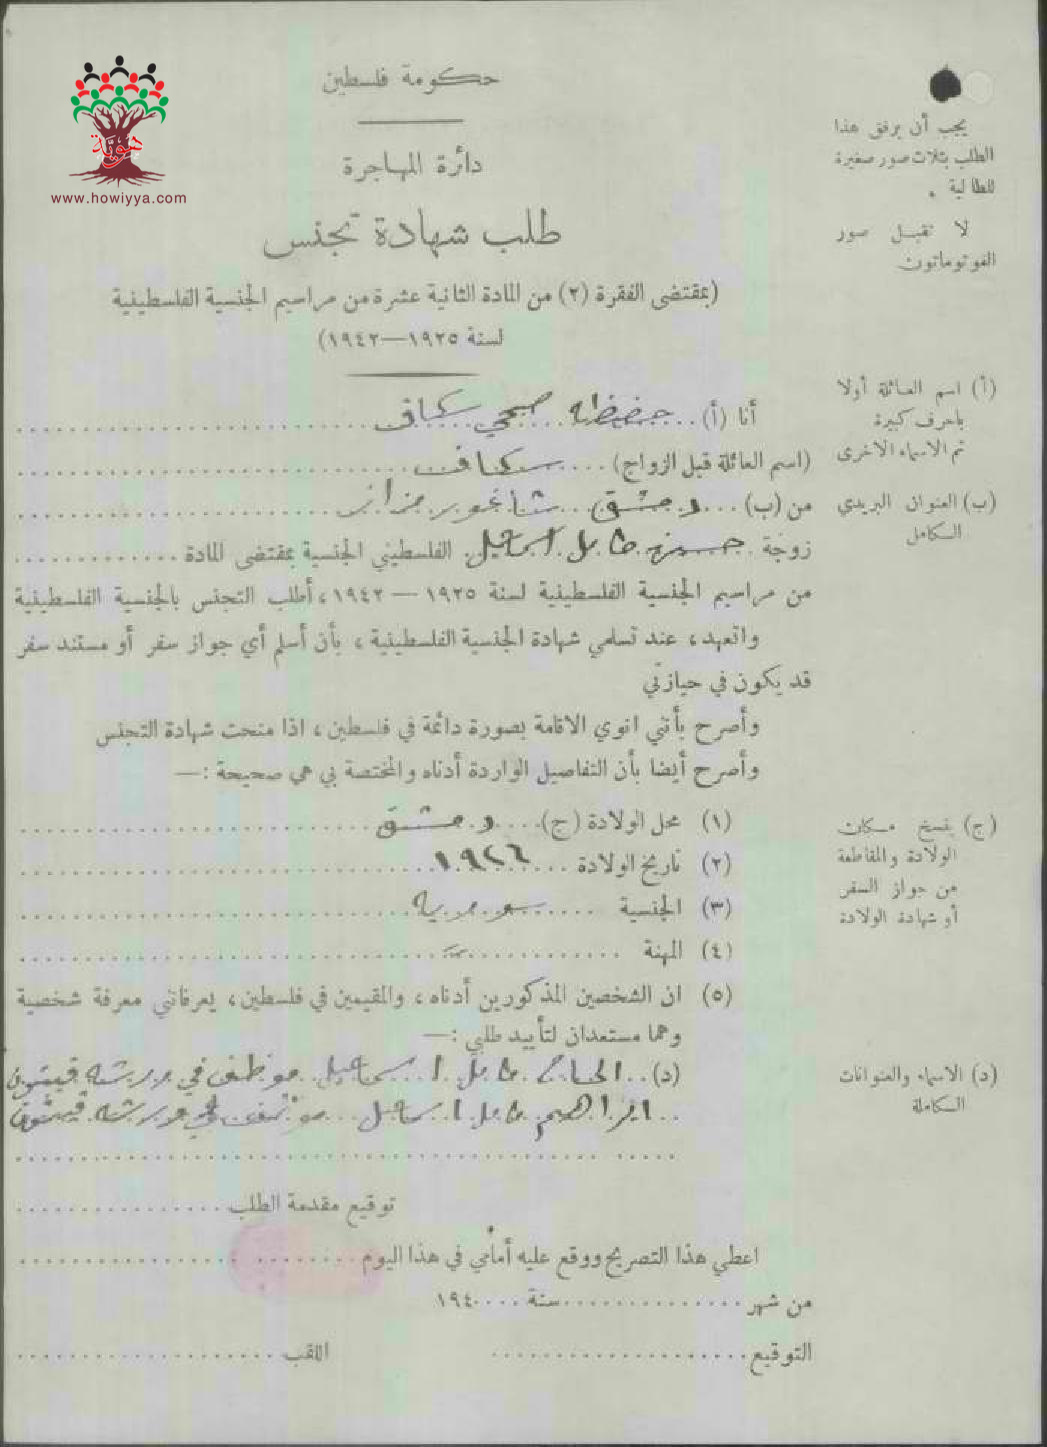 حكومة فلسطين
دائرة المهاجرة
طلب شهادة تجنس
(بمقتضى الفقرة (٢) من المادة الثانية عشرة من مراسيم الجنسية الفلسطينية
لسنة ١٩٢٥—١٩٤٢)
هوية
www.howiyya.com
يجب أن يرفق هذا
الطلب بثلاث صور صغيرة
للطالبة .
لا تقبل صور
الفوتوماتون
أنا (أ) صبحي
(اسم العائلة قبل الزواج)
من (ب) دمشق شاغور
زوجة كامل اسماعيل الفلسطيني الجنسية بمقتضى المادة
من مراسيم الجنسية الفلسطينية لسنة ١٩٢٥ — ١٩٤٢، أطلب التجنس بالجنسية الفلسطينية
واتعهد، عند تسلمي شهادة الجنسية الفلسطينية، بأن أسلم أي جواز سفر أو مستند سفر
قد يكون في حيازتي
وأصرح بأنني انوي الاقامة بصورة دائمة في فلسطين، اذا منحت شهادة التجنس
وأصرح أيضا بأن التفاصيل الواردة أدناه والمختصة بي هي صحيحة :—
(١) محل الولادة (ج) دمشق
(٢) تاريخ الولادة ١٩٢٦
(٣) الجنسية سورية
(٤) المهنة
(٥) ان الشخصين المذكورين أدناه، والمقيمين في فلسطين، يعرفانني معرفة شخصية
وهما مستعدان لتأييد طلبي :—
(د) الحاج كامل اسماعيل موظف في
ابراهيم كامل اسماعيل في
توقيع مقدمة الطلب
اعطي هذا التصريح ووقع عليه أمامي في هذا اليوم
من شهر سنة ١٩٤٠
التوقيع اللقب
(أ) اسم العائلة أولا
باحرف كبيرة
ثم الاسماء الاخرى
(ب) العنوان البريدي
الكامل
(ج) ينسخ مكان
الولادة والمقاطعة
من جواز السفر
أو شهادة الولادة
(د) الاسماء والعنوانات
الكاملة